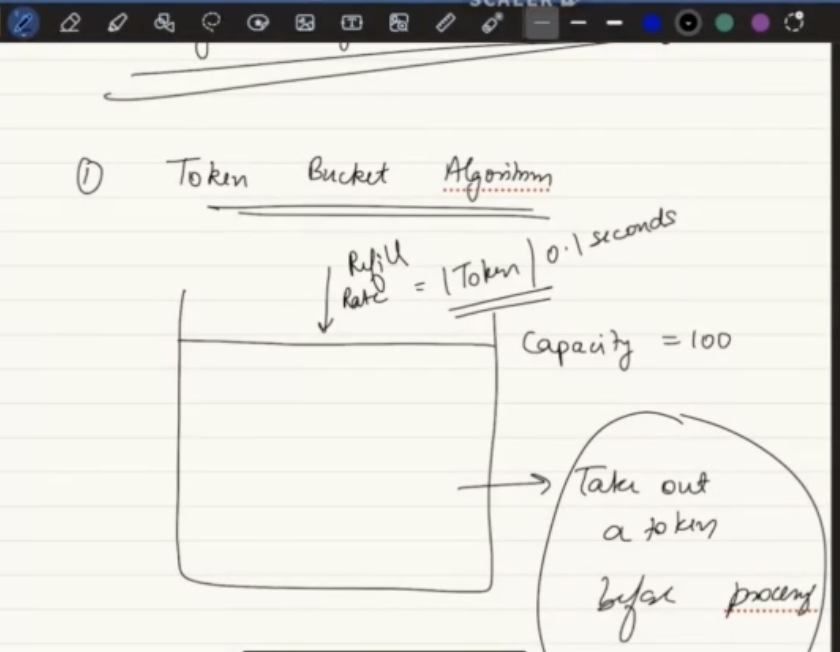 SCALER
① Token Bucket Algorithm
Refill
Rate = 1 Token | 0.1 seconds
Capacity = 100
Take out
a token
before